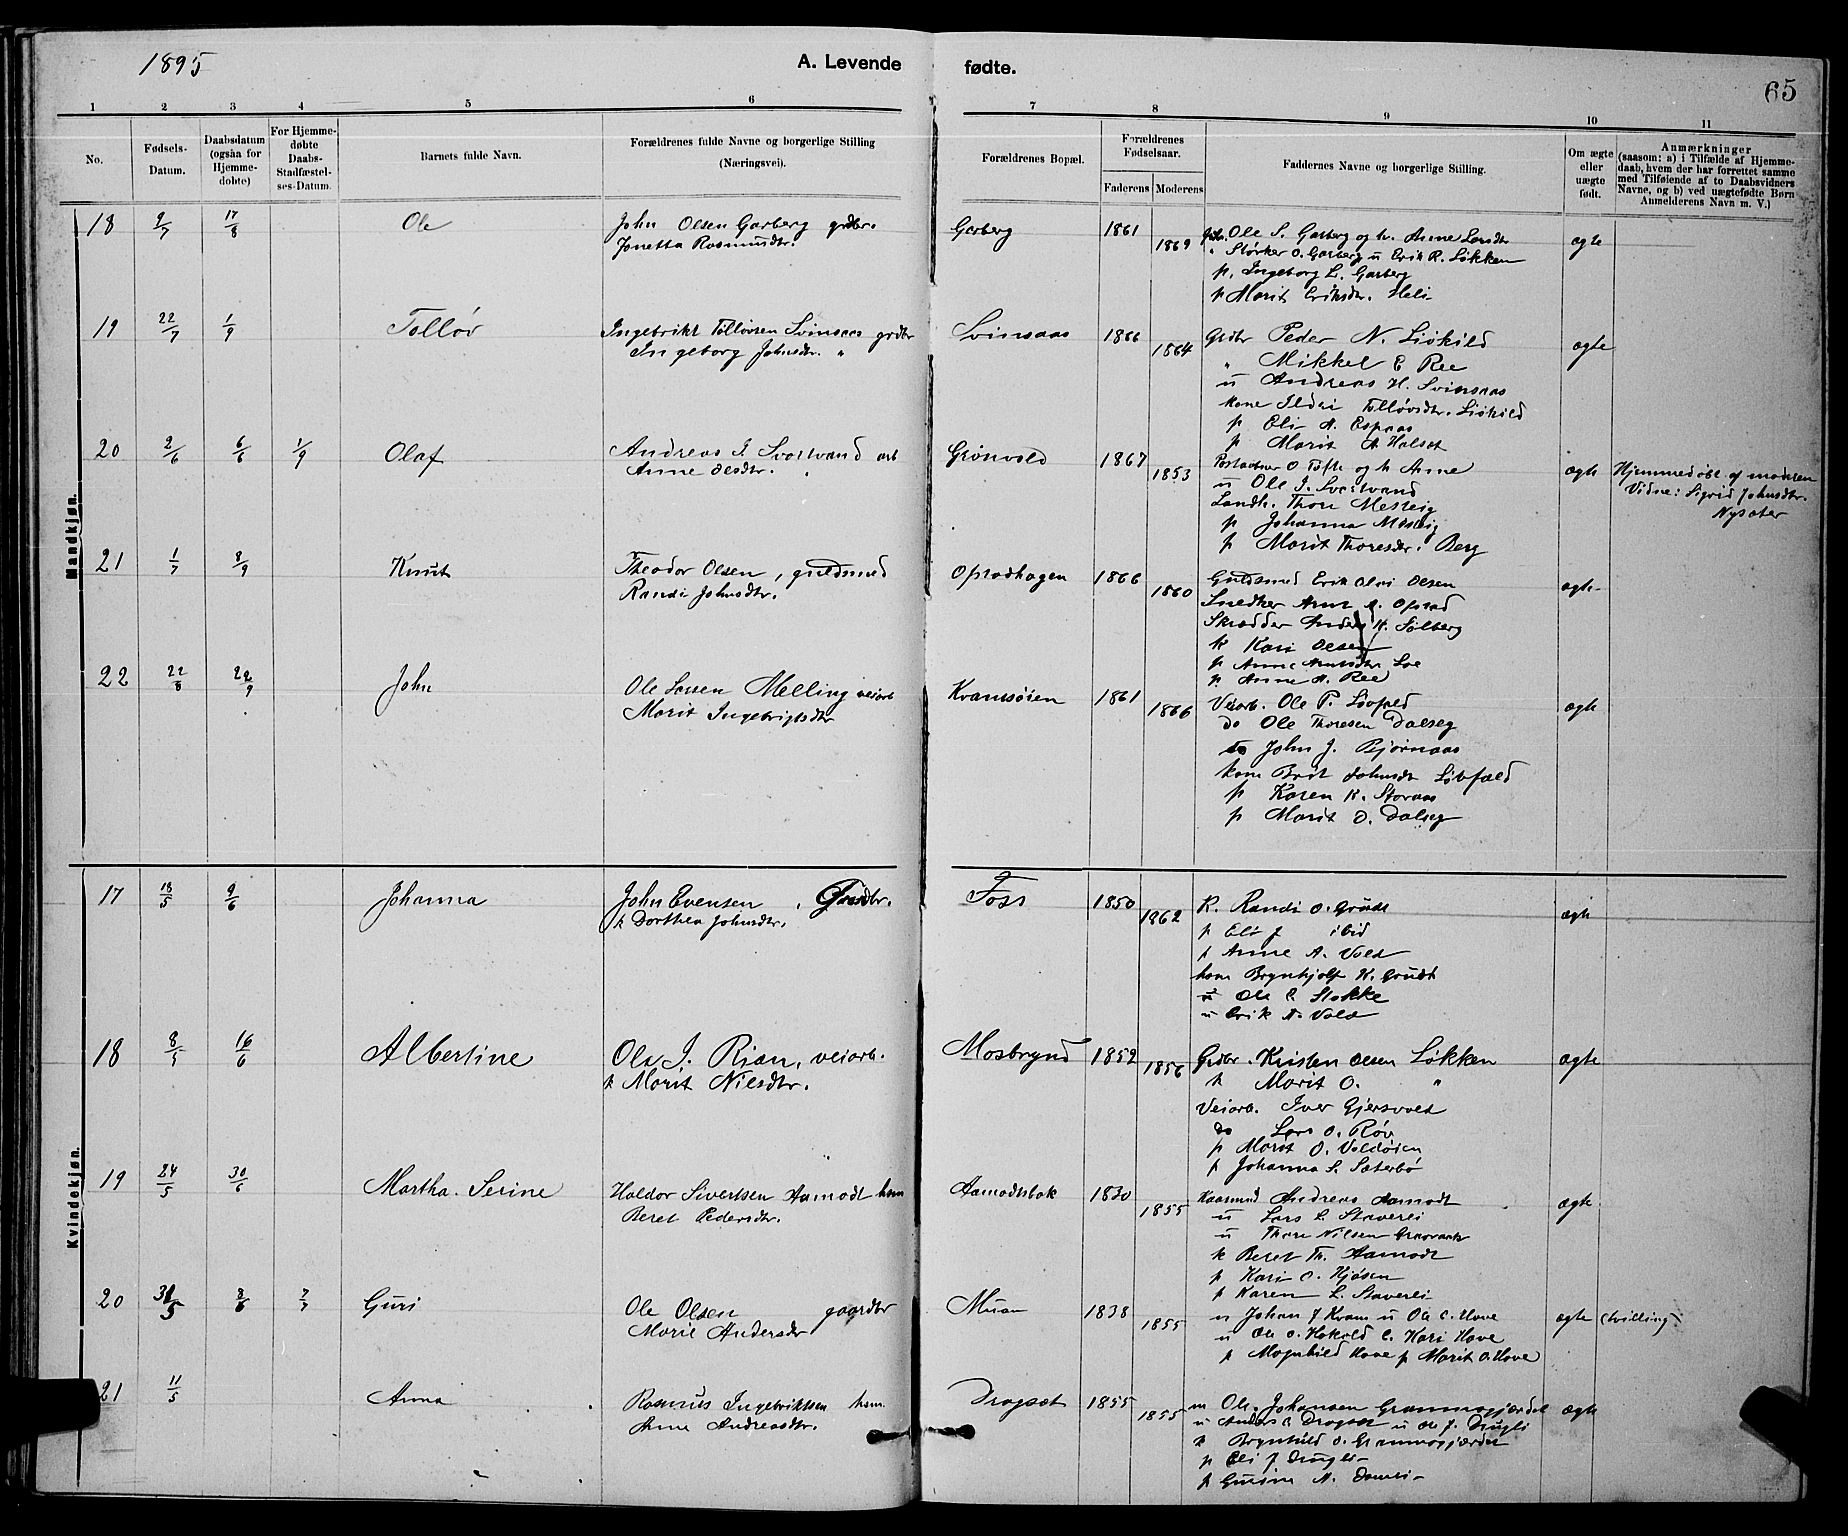 1895
A. Levende fødte.
65
1 2 3 4 5 6 7 8 9 10 11
No.
Fødsels-Datum.
Daabsdatum (ogsaa for Hjemme-døbte)
For Hjemme-døbte Daabs-Stadfæstel-ses-Datum.
Barnets fulde Navn.
Forældrenes fulde Navne og borgerlige Stilling (Næringsvei).
Forældrenes Bopæl.
Forældrenes Fødselsaar.
Faderens Moderens
Faddernes Navne og borgerlige Stilling.
Om ægte eller uægte født.
Anmærkninger
(saasom: a) i Tilfælde af Hjemme-
daab, hvem der har forrettet samme
med Tilføiende af to Daabsvidners
Navne, og b) ved uægtefødte Børn
Anmelderens Navn m. V.)
Mandkjøn.
18 9/7 17/8 Ole
John Olsen Garberg grdbr.
Jonetta Rasmusdtr.
Garberg 1861 1869
Grdbr. Ole S. Garberg og h. Anne Larsdtr
" Størker O. Garberg u Erik R. Løkken
p. Ingeborg L. Garberg
p Marit Eriksdtr. Heli
ægte
19 22/7 1/9 Tolløv
Ingebrikt Tolløvsen Svinsaas grdbr
Ingeborg Johnsdtr. "
Svinsaas 1866 1864
Grdbr Peder N. Liøkild
" Mikkel E Ree
u Andreas H. Svinsaas
kone Ildri Tolløvsdtr. Liøkild
p Eli A. Espaas
p Marit A Halset
ægte
20 2/6 6/6 1/9 Olaf
Andreas J Svartvand arb
Anne Olsdtr. "
Grønvold 1867 1853
O Tøfte og h Anne
u Ole J. Svartvand
Landh. Thore Mesleig
p Johanna Mesleig
p Marit Thoresdtr. Berg
ægte
Hjemmedøbt af modren
Vidne: Sigrid Johnsdtr.
Nysæter
21 1/7 8/9 Knut
Theodor Olsen, guldsmed
Randi Johnsdtr.
Opradhagen 1866 1860
Guldsmed Erik Olai Olsen
Snedker Arnt A. Oprad
Skrædder Anders K. Solberg
k Kari Olsen
p Anne Arntsdtr Loe
p. Anne A. Ree
ægte
22 22/8 22/9 John
Ole Larsen Melling veiarb
Marit Ingebrigtsdtr
Kvamsøien 1861 1866
Veiarb. Ole P. Løvfald
do Ole Thoresen Dalseg
do John J. Bjørnaas
kone Brit Johnsdt Løvfald
p Karen K. Storaas
p Marit O. Dalseg
ægte
Kvindekjøn.
17 18/5 9/6 Johanna
John Evensen, Grdbr.
k Dorthea Johnsdtr.
Foss 1850 1862
K. Randi O. Grudt
p Eli J ibid
p Anne A. Vold
ham Brynhjolf K. Grudt
u Ole E Stokke
u Erik A. Vold
ægte
18 8/5 16/6 Albertine
Ole J. Rian, veiarb.
k Marit Nilsdtr.
Mosbrynd 1852 1856
Grdbr. Kristen Olsen Løkken
k Marit O. "
Veiarb. Iver Gjersvold
do Lars O. Røv
p Marit O. Voldøien
p Johanna S. Sæterbø
ægte
19 24/5 30/6 Martha Serine
Haldor Sivertsen Aamodt hsm
Beret Pedersdtr.
Aamodtsbak 1830 1855
Andreas Aamodt
u Lars L. Staverli
u Thore Nilsen
k Beret Th. Aamodt
p Kari O. Hjøsen
p Karen L. Staverli
ægte
20 31/5 8/6 7/7 Guri
Ole Olsen gaardbr
Marit Andersdtr
Muan 1838 1855
u Johan J Kvam u Ole C. Hove
u Ole O. Hokold C. Kari Hove
p Magnhild Hove p Marit O. Hove
ægte (tvilling)
21 11/5 Anna
Rasmus Ingebriktsen hsm.
Anne Andreasdtr.
Dragset 1855 1855
m Ole Johansen Grammogjærdet
u Anders E Dragset u Ole J. Drugli
k Brynhild O. Grammogjærdet
p Eli J Drugli
p Gurine N.
ægte